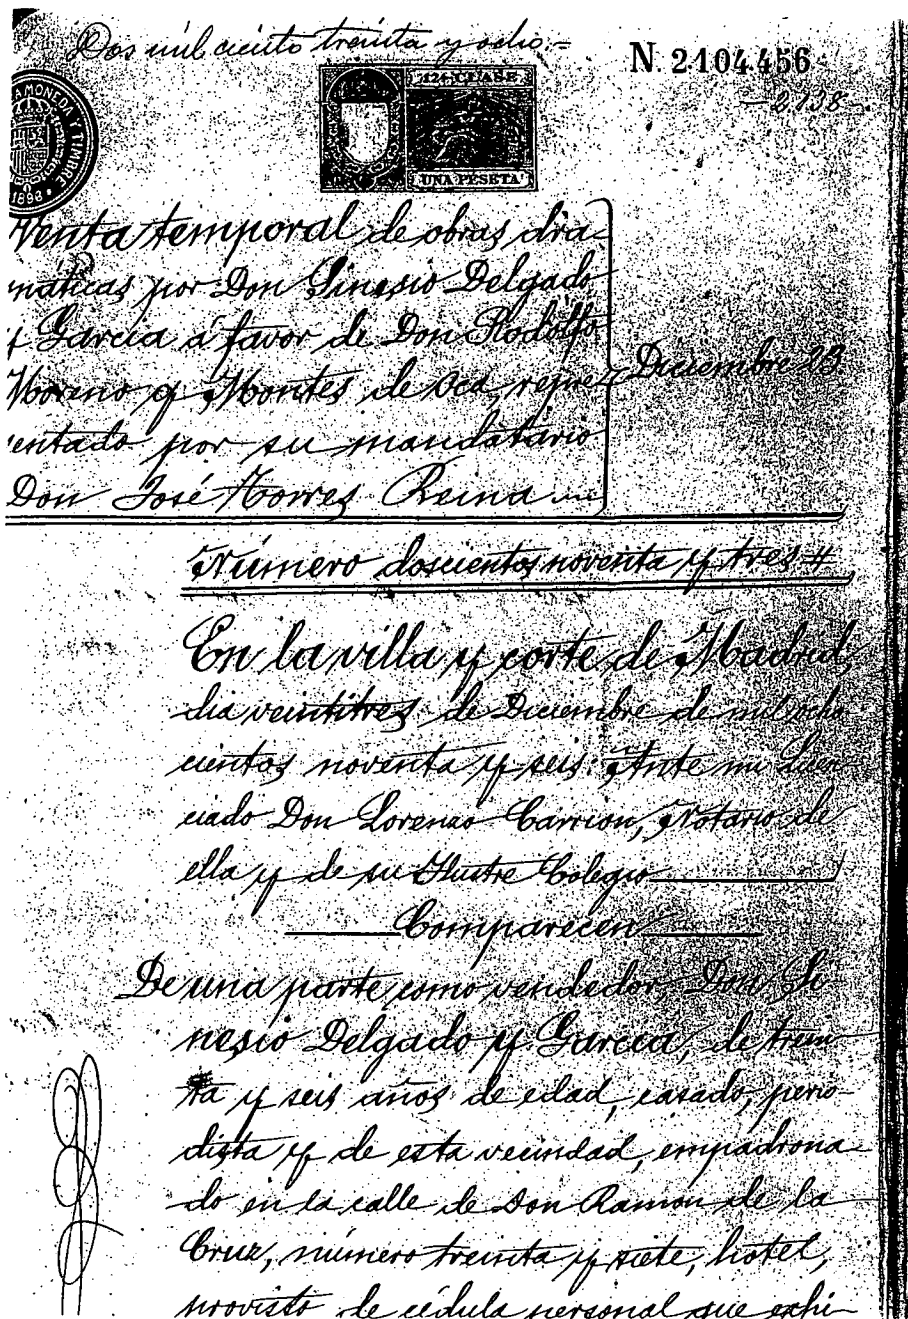 Dos mil ciento treinta y ocho.=
N. 2104456
-2138-
12ª CLASE
UNA PESETA
MONEDA Y TIMBRE
1896
Venta temporal de obras dra-
máticas por Don Sinesio Delgado
y García á favor de Don Rodolfo
Moreno y Montes de oca, repre-
sentado por su mandatario
Don José Torres Reina
Diciembre 23
Número doscientos noventa y tres #
En la villa y corte de Madrid,
dia veintitres de Diciembre de mil ocho-
cientos noventa y seis: Ante mi Licen-
ciado Don Lorenzo Carrion, Notario de
ella y de su Ilustre Colegio
Comparecen
De una parte como vendedor, Don Si-
nesio Delgado y García, de trein-
ta y seis años de edad, casado, perio-
dista y de esta vecindad, empadrona-
do en la calle de Don Ramon de la
Cruz, número treinta y siete, hotel,
provisto de cédula personal que exhi-